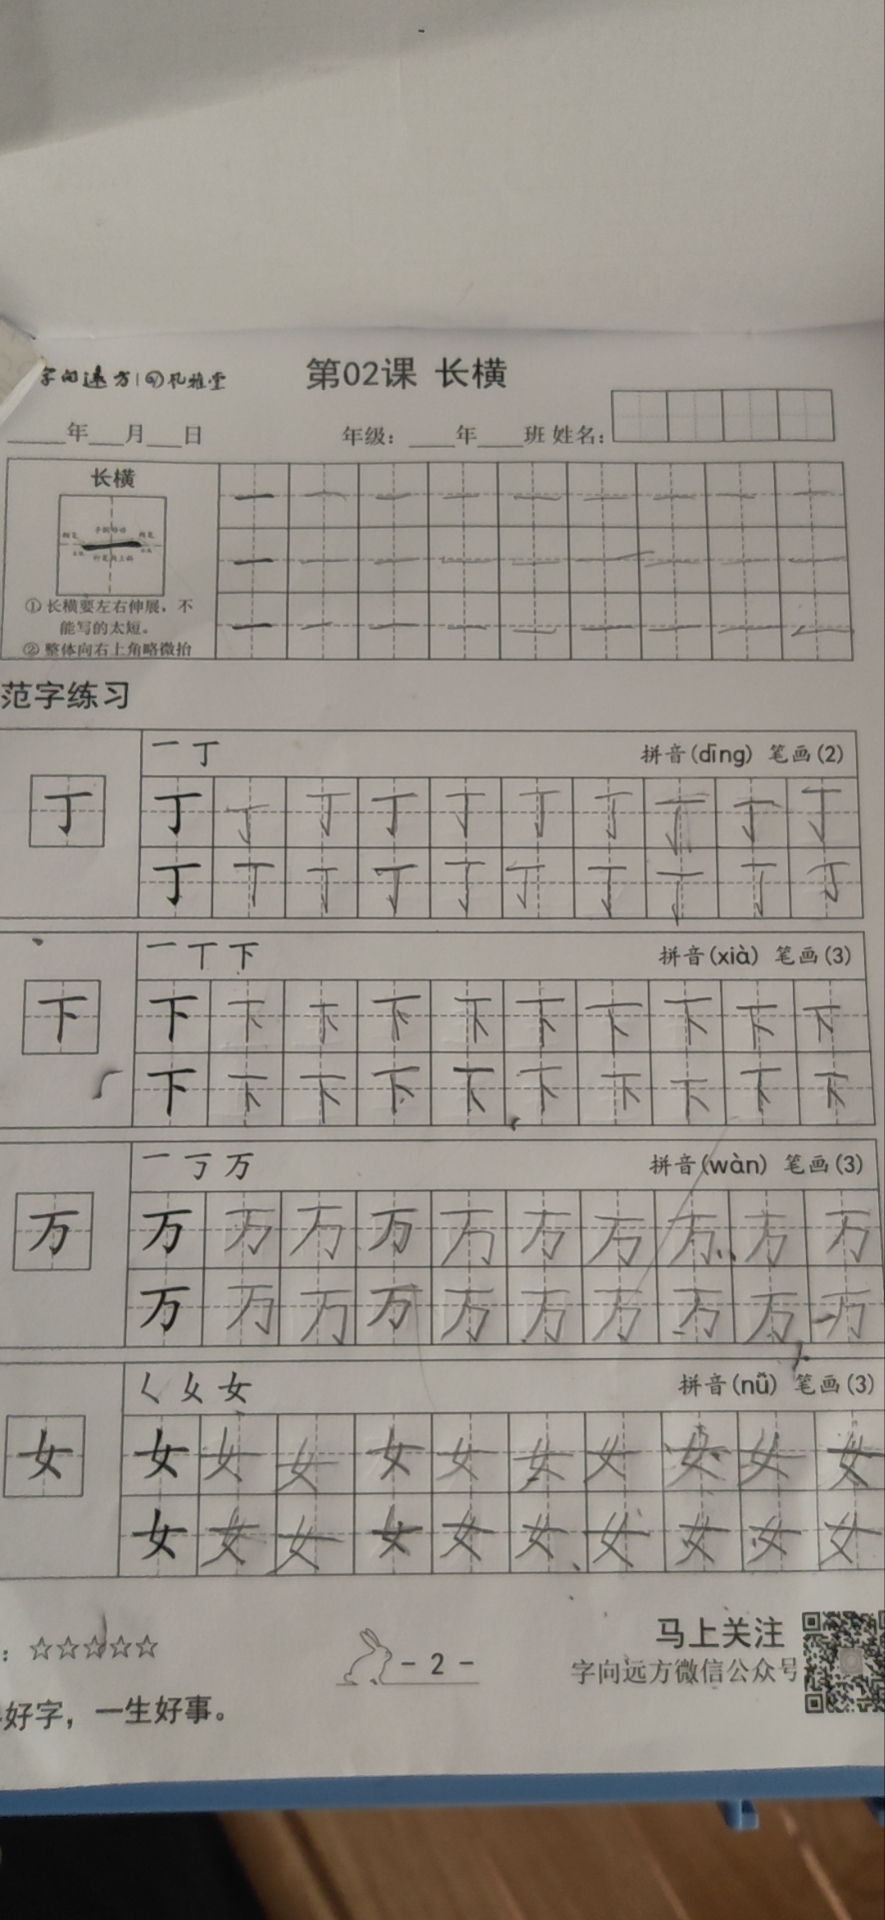 字向远方|孔雅堂
第02课 长横
____年___月___日 年级：____年____班 姓名：
长横
一 一 一 一 一 一 一 一 一
一 一 一 一 一 一 一 一 一
一 一 一 一 一 一 一 一 一
①长横要左右伸展，不
能写的太短。
②整体向右上角略微抬
范字练习
一 丁 拼音(dīng) 笔画(2)
丁 丁 丁 丁 丁 丁 丁 丁 丁 丁 丁
丁 丁 丁 丁 丁 丁 丁 丁 丁 丁
一 丅 下 拼音(xià) 笔画(3)
下 下 下 下 下 下 下 下 下 下 下
下 下 下 下 下 下 下 下 下 下
一 丂 万 拼音(wàn) 笔画(3)
万 万 万 万 万 万 万 万 万 万 万
万 万 万 万 万 万 万 万 万 万
く 女 女 拼音(nǚ) 笔画(3)
女 女 女 女 女 女 女 女 女 女 女
女 女 女 女 女 女 女 女 女 女
：☆☆☆☆☆
- 2 -
马上关注
字向远方微信公众号
好字，一生好事。